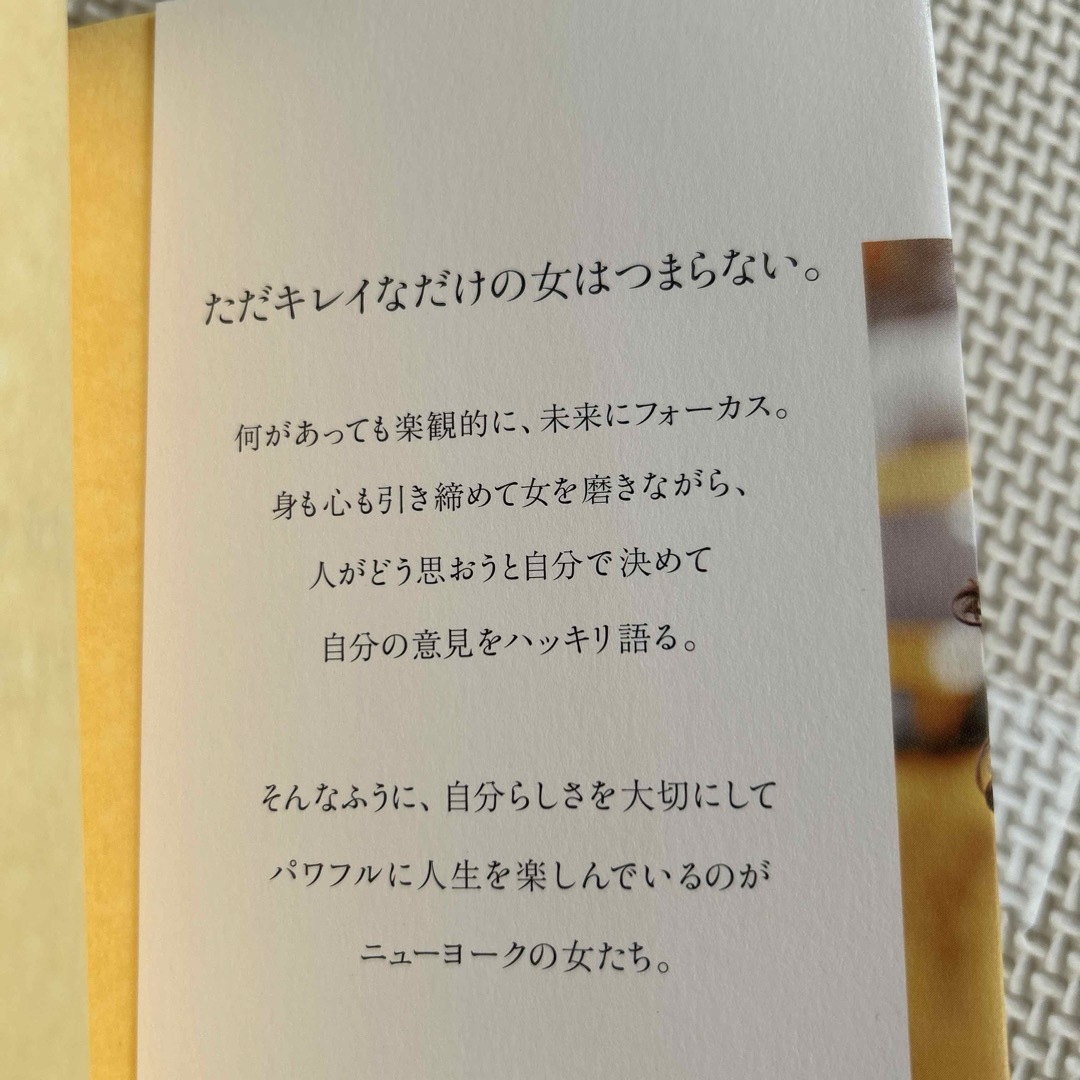 ただキレイなだけの女はつまらない。
何があっても楽観的に、未来にフォーカス。
身も心も引き締めて女を磨きながら、
人がどう思おうと自分で決めて
自分の意見をハッキリ語る。
そんなふうに、自分らしさを大切にして
パワフルに人生を楽しんでいるのが
ニューヨークの女たち。